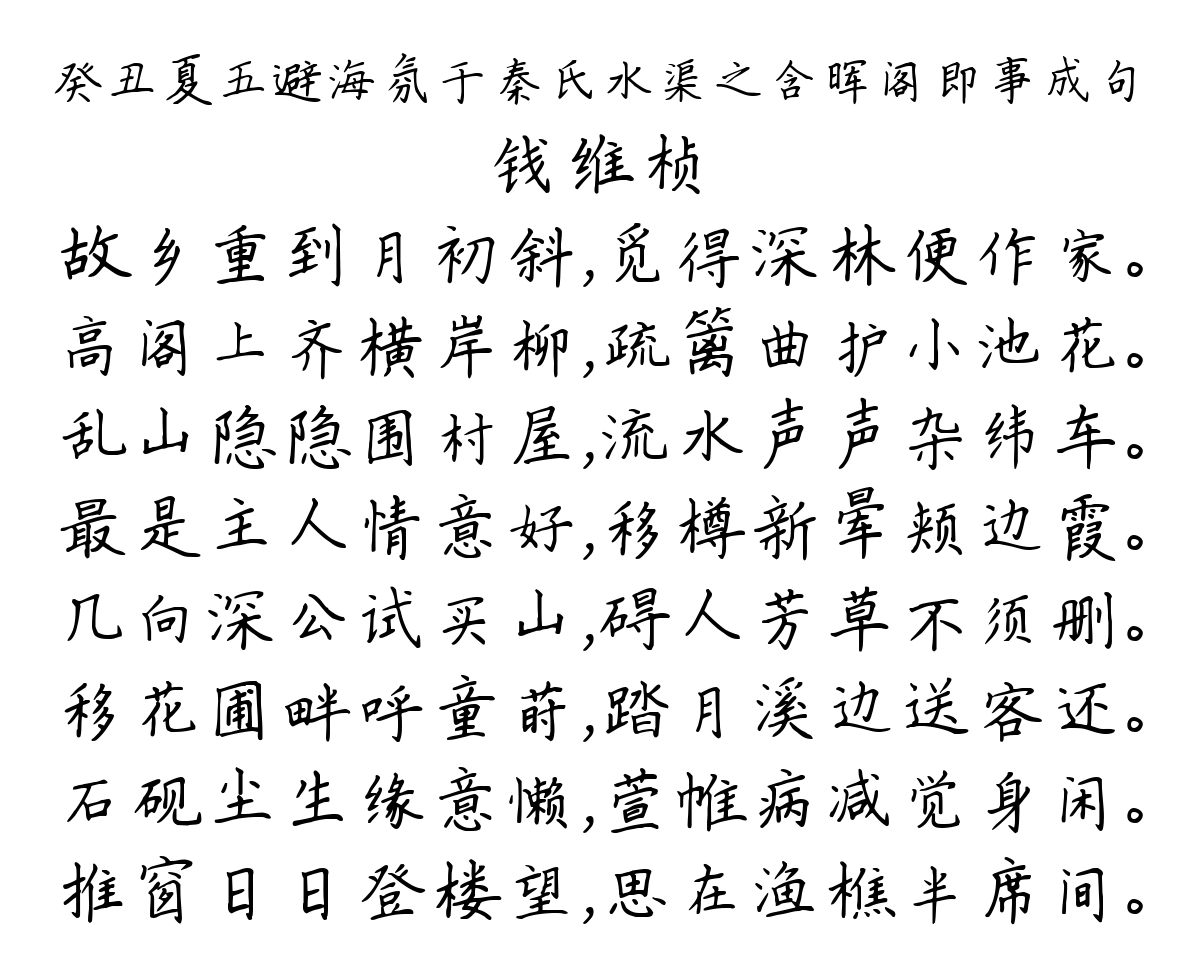 癸丑夏五避海氛于秦氏水渠之含晖阁即事成句
钱维桢
故乡重到月初斜,觅得深林便作家。
高阁上齐横岸柳,疏篱曲护小池花。
乱山隐隐围村屋,流水声声杂纬车。
最是主人情意好,移樽新晕颊边霞。
几向深公试买山,碍人芳草不须删。
移花圃畔呼童莳,踏月溪边送客还。
石砚尘生缘意懒,萱帷病减觉身闲。
推窗日日登楼望,思在渔樵半席间。